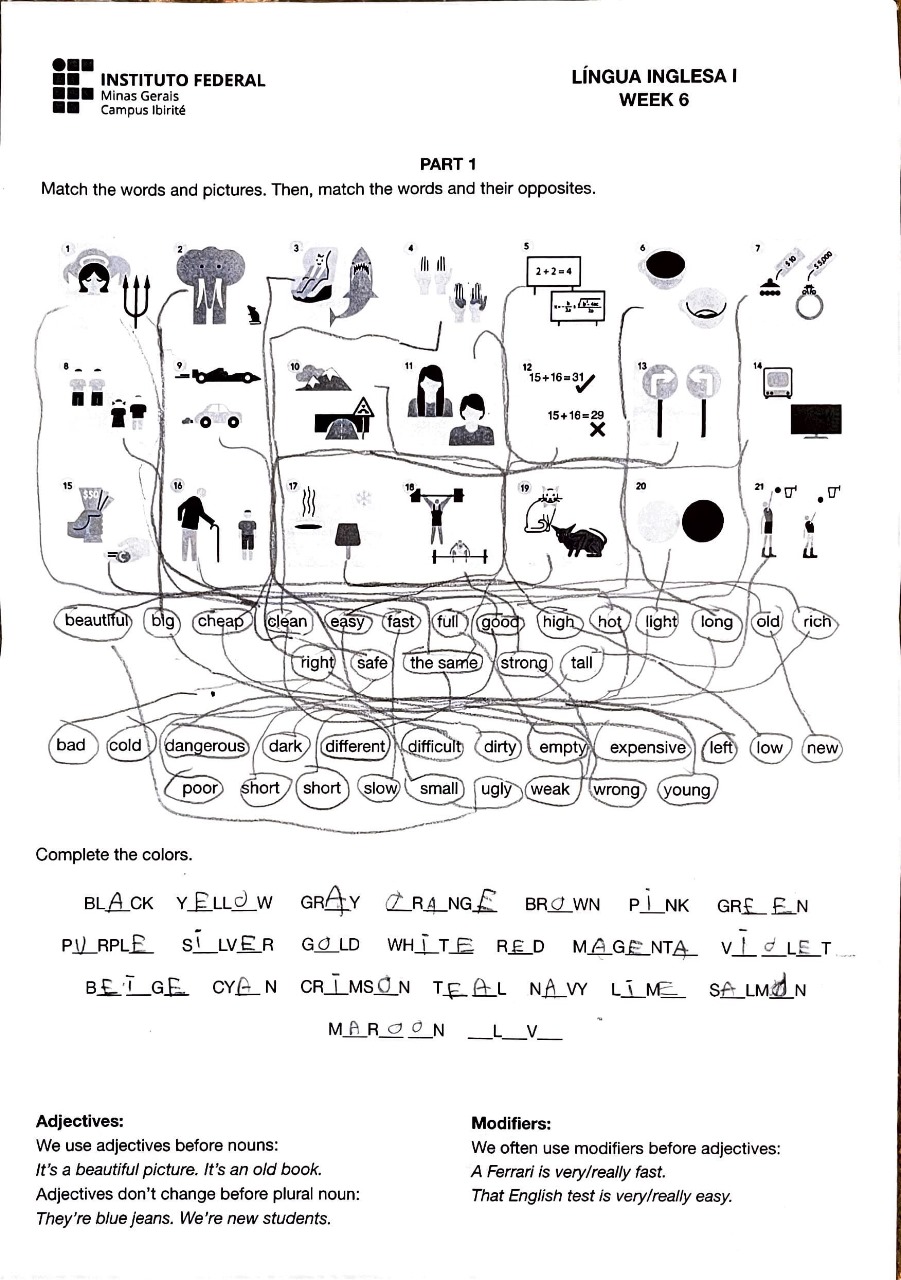 INSTITUTO FEDERAL
Minas Gerais
Campus Ibirité
LÍNGUA INGLESA I
WEEK 6
PART 1
Match the words and pictures. Then, match the words and their opposites.
1 2 3 4 5 6 7
2+2=4
$10 $5,000
8 9 10 11 12 13 14
15+16=31
15+16=29
15 16 17 18 19 20 21
$50
beautiful big cheap clean easy fast full good high hot light long old rich
right safe the same strong tall
bad cold dangerous dark different difficult dirty empty expensive left low new
poor short short slow small ugly weak wrong young
Complete the colors.
BLACK YELLOW GRAY ORANGE BROWN PINK GREEN
PURPLE SILVER GOLD WHITE RED MAGENTA VIOLET
BEIGE CYAN CRIMSON TEAL NAVY LIME SALMON
MAROON __L__V__
Adjectives:
We use adjectives before nouns:
It's a beautiful picture. It's an old book.
Adjectives don't change before plural noun:
They're blue jeans. We're new students.
Modifiers:
We often use modifiers before adjectives:
A Ferrari is very/really fast.
That English test is very/really easy.